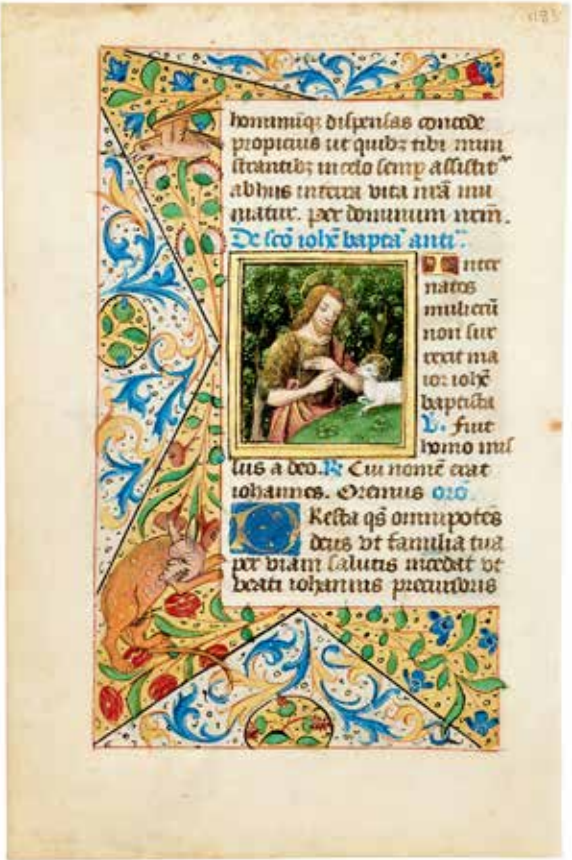 hominūq; dispensas concede
propicius ut quib; tibi mini
strantib; in celo semp assistit᷑
ab hiis in terra vita nrā mu
niatur. per dominum nrm̄.
De scō ioh̄e bapta᷑ anti᷑.
Inter
natos
mulierū
non sur
rexit ma
ior ioh̄e
baptista
V. fuit
homo mis
sus a deo. R Cui nomē erat
iohannes. Oremus orō.
Presta q̄s omnipotēs
deus vt familia tua
per viam salutis incedat vt
beati iohannis precursoris